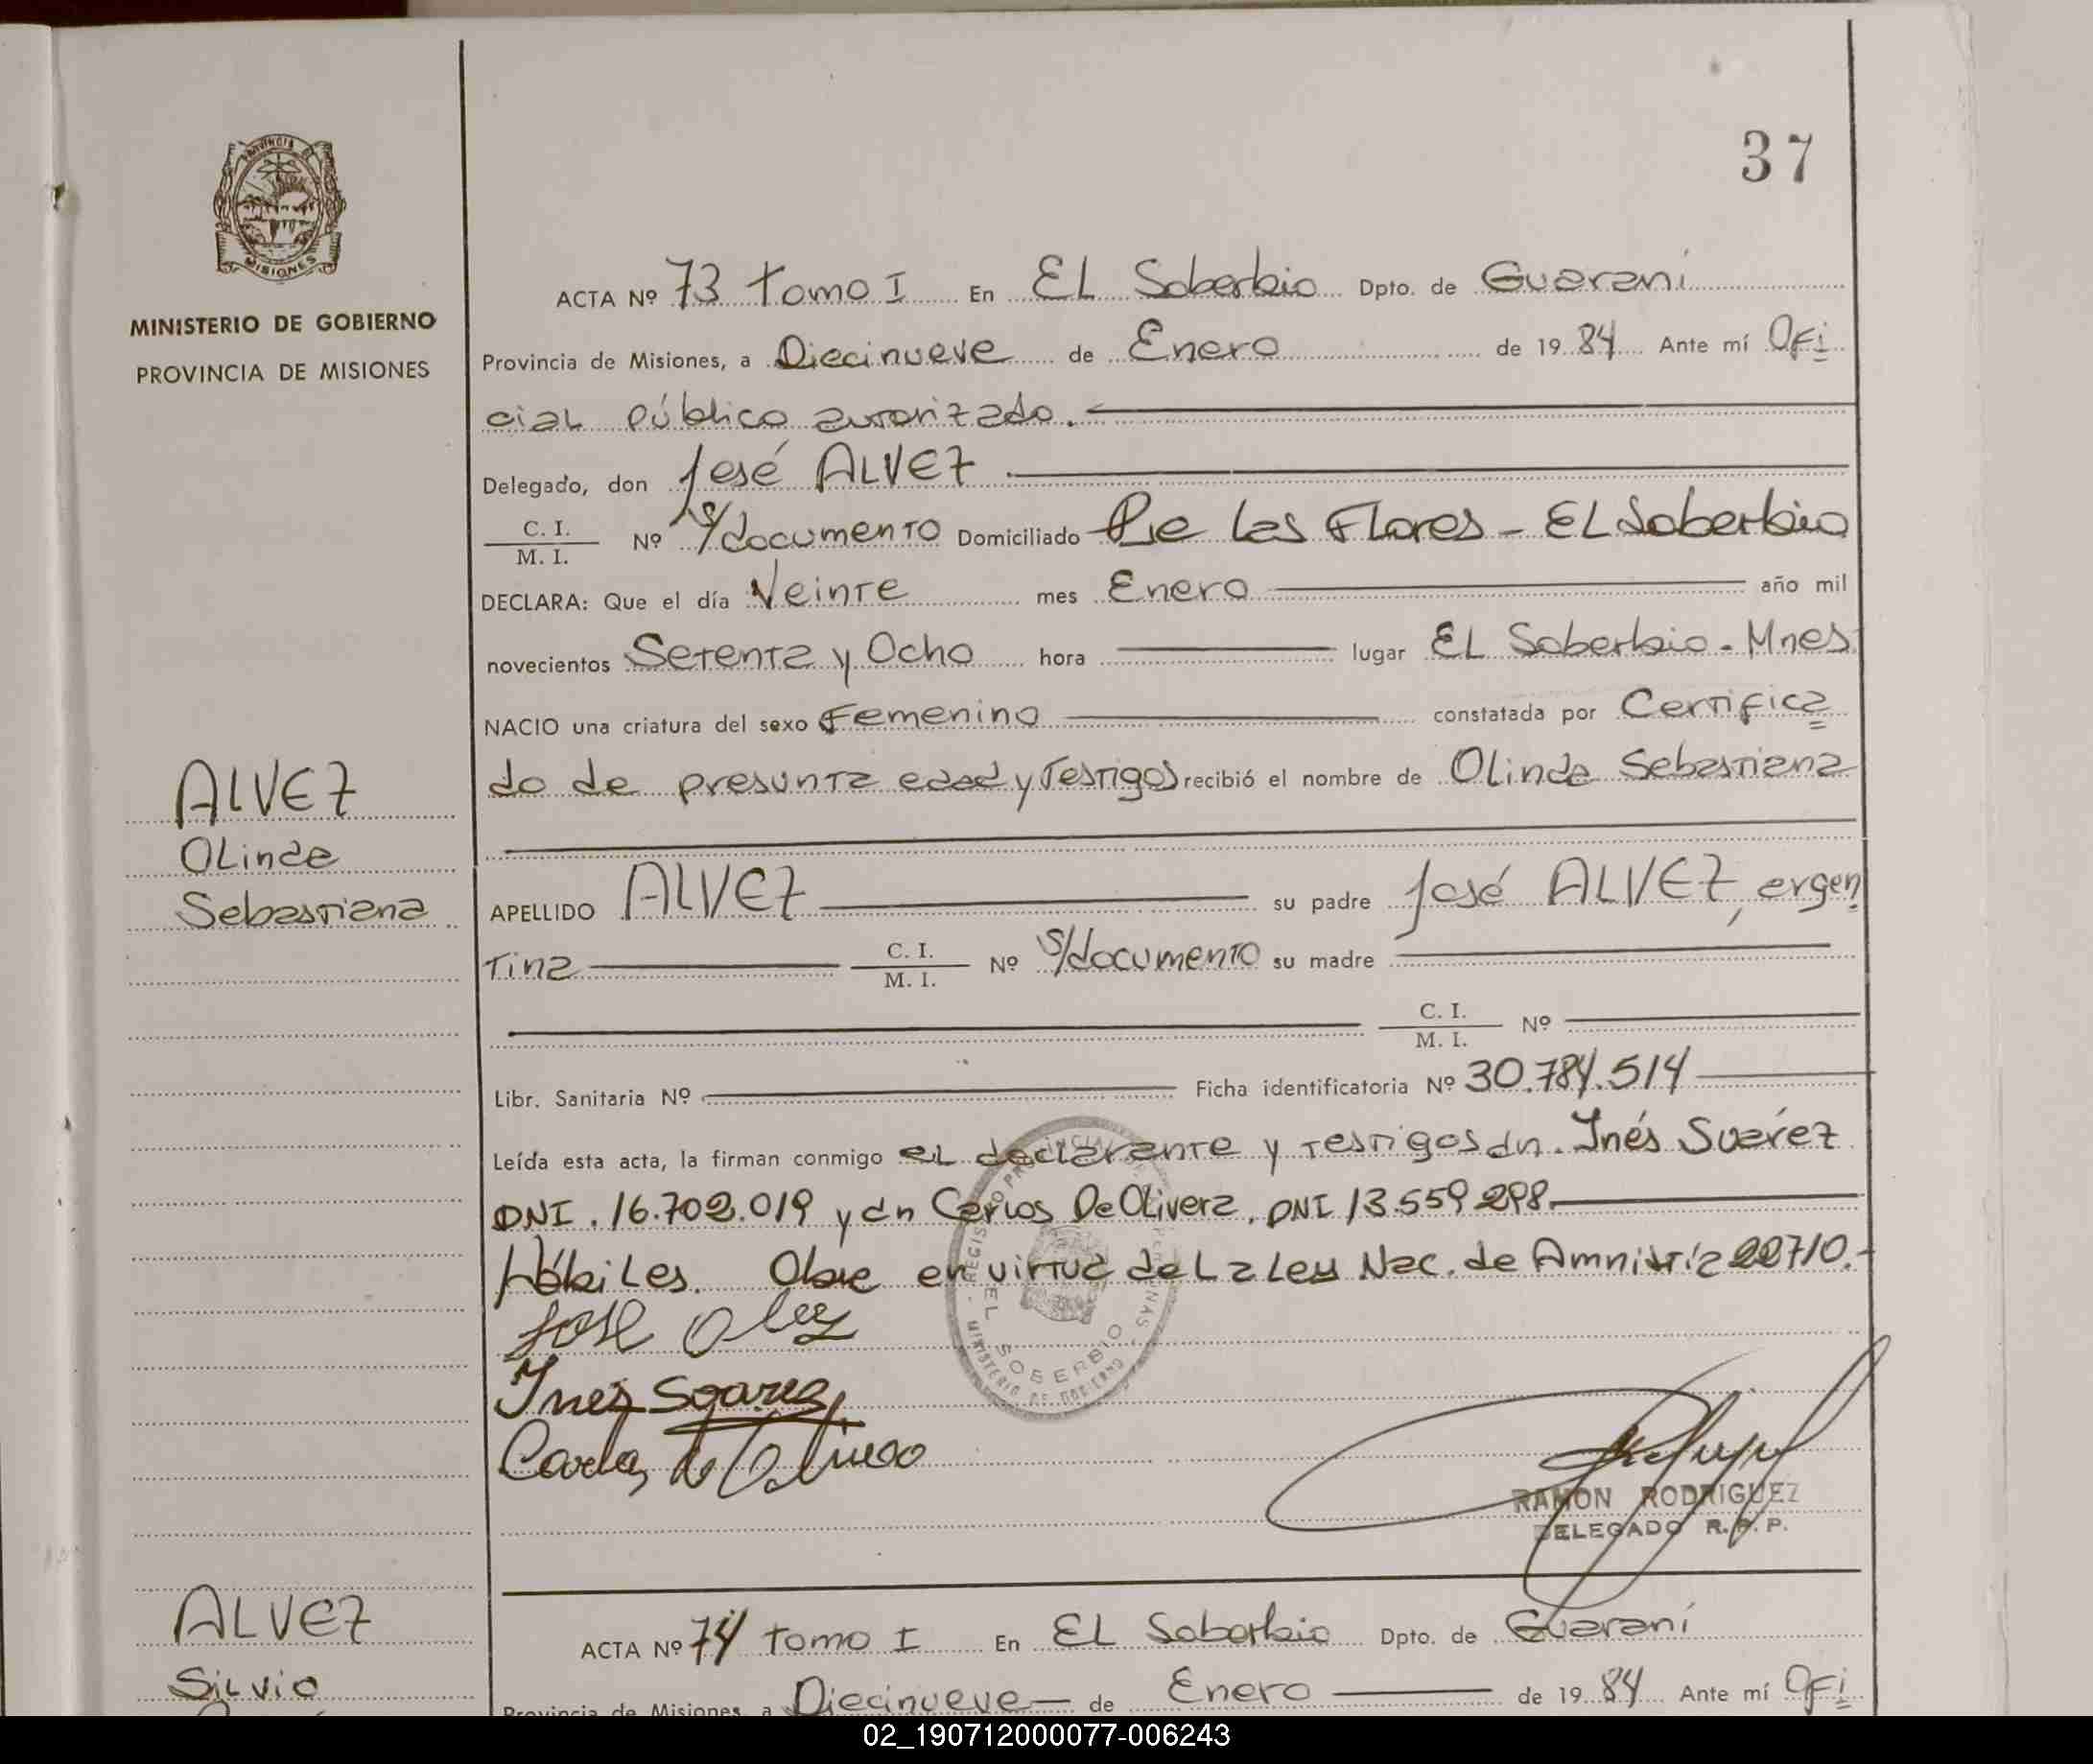 37
PROVINCIA DE
MISIONES
MINISTERIO DE GOBIERNO
PROVINCIA DE MISIONES
ACTA Nº 73 Tomo I En EL Soberbio Dpto. de Guaraní
Provincia de Misiones, a Diecinueve de Enero de 1984 Ante mí Ofi
cial público autorizado.
Delegado, don José ALVEZ
C. I. / M. I. Nº s/documento Domiciliado Pje Las Flores - EL Soberbio
DECLARA: Que el día Veinte mes Enero año mil
novecientos Setenta y Ocho hora lugar EL Soberbio - Mnes
NACIO una criatura del sexo Femenino constatada por Certifica
do de presunta edad y Testigos recibió el nombre de Olinda Sebastiana
ALVEZ
Olinda
Sebastiana
APELLIDO ALVEZ su padre José ALVEZ, argen
tina C. I. / M. I. Nº s/documento su madre
C. I. / M. I. Nº
Libr. Sanitaria Nº Ficha identificatoria Nº 30.784.514
Leída esta acta, la firman conmigo el declarante y testigos dn. Inés Suárez
DNI. 16.702.019 y dn Carlos De Olivera, DNI 13.559.298
Hábiles. Obre en virtud de La Ley Nac. de Amnistía 22710.-
José
Ines Soarez
Carlos de Olivera
EL SOBERBIO
MINISTERIO DE GOBIERNO
RAMON RODRIGUEZ
DELEGADO R. P. P.
ALVEZ
Silvio
ACTA Nº 74 Tomo I En EL Soberbio Dpto. de Guaraní
Provincia de Misiones, a Diecinueve de Enero de 1984 Ante mí Ofi
02_190712000077-006243